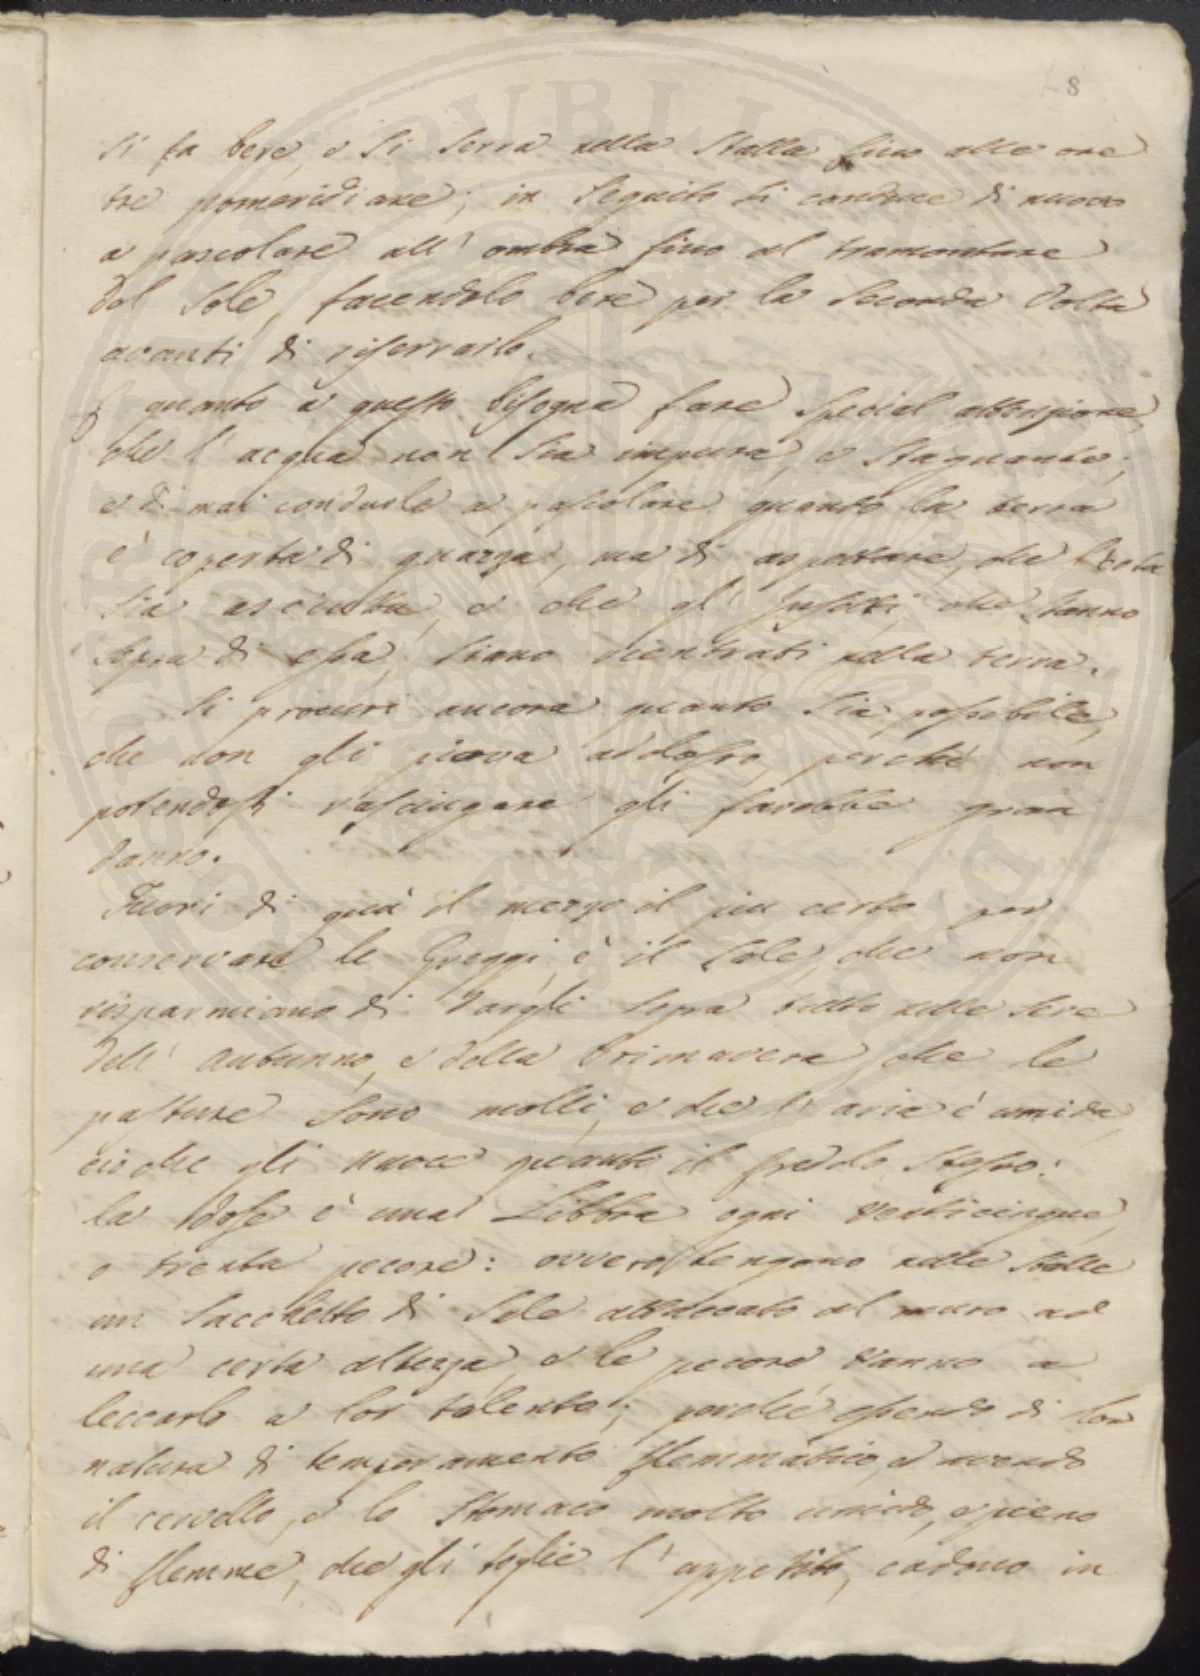 8
si fa bere, e si serra nella stalla fino alle ore
tre pomeridiane; in seguito si conduce di nuovo
a pascolare all' ombra fino al tramontare
del sole, facendolo bere per la seconda volta
avanti di riserrarlo.
quanto a questo bisogna fare special attenzione,
che l' acqua non sia impura, e stagnante;
e di mai condurle a pascolare quando la terra
è coperta di guazza, ma di aspettare, che
sia asciutta, e che gl' Insetti, che stanno
sopra di essa, siano rientrati nella terra.
Si procuri ancora quanto sia possibile,
che non gli piova addosso, perchè non
potendosi rasciugare gli farebbe gran
danno.
Fuori di quà il mezzo il piu certo per
conservare le Greggi, è il sale, che non
risparmiano di dargli sopra tutto nelle sere
dell' Autunno, e della Primavera, che le
pasture sono molli, e che l' aria è umida,
cio che gli nuoce quanto il freddo stesso:
la dose è una Libbra ogni venticinque,
o trenta pecore: ovvero tengono nelle stalle
un sacchetto di sale attaccato al muro ad
una certa altezza, e le pecore vanno a
leccarlo a lor talento; perchè essendo di lor
natura di temperamento flemmatico, e avendo
il cervello, e lo stomaco molto umido, e pieno
di flemme, che gli toglie l' appetito, cadono in